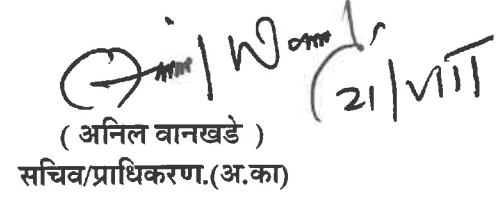 21/VIII
( अनिल वानखडे )
सचिव/प्राधिकरण.(अ.का)